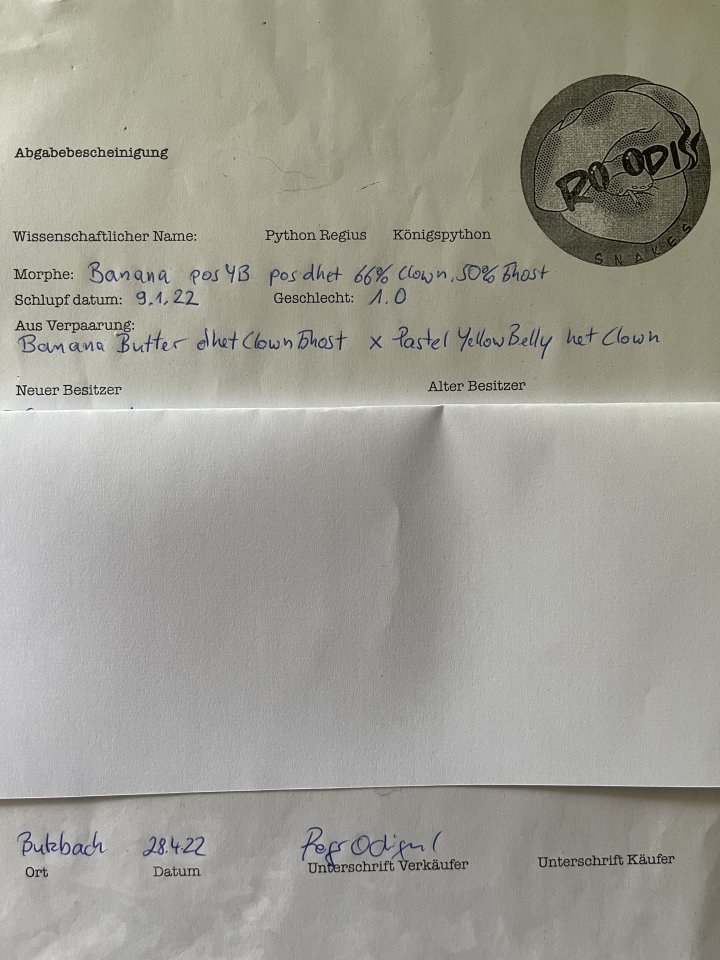 RO ODISS
SNAKES
Abgabebescheinigung
Wissenschaftlicher Name: Python Regius Königspython
Morphe: Banana pos YB pos dhet 66% Clown, 50% Ghost
Schlupf datum: 9.1.22 Geschlecht: 1.0
Aus Verpaarung:
Banana Butter dhet Clown Ghost x Pastel Yellow Belly het Clown
Neuer Besitzer Alter Besitzer
Butzbach 28.4.22
Ort Datum Unterschrift Verkäufer Unterschrift Käufer